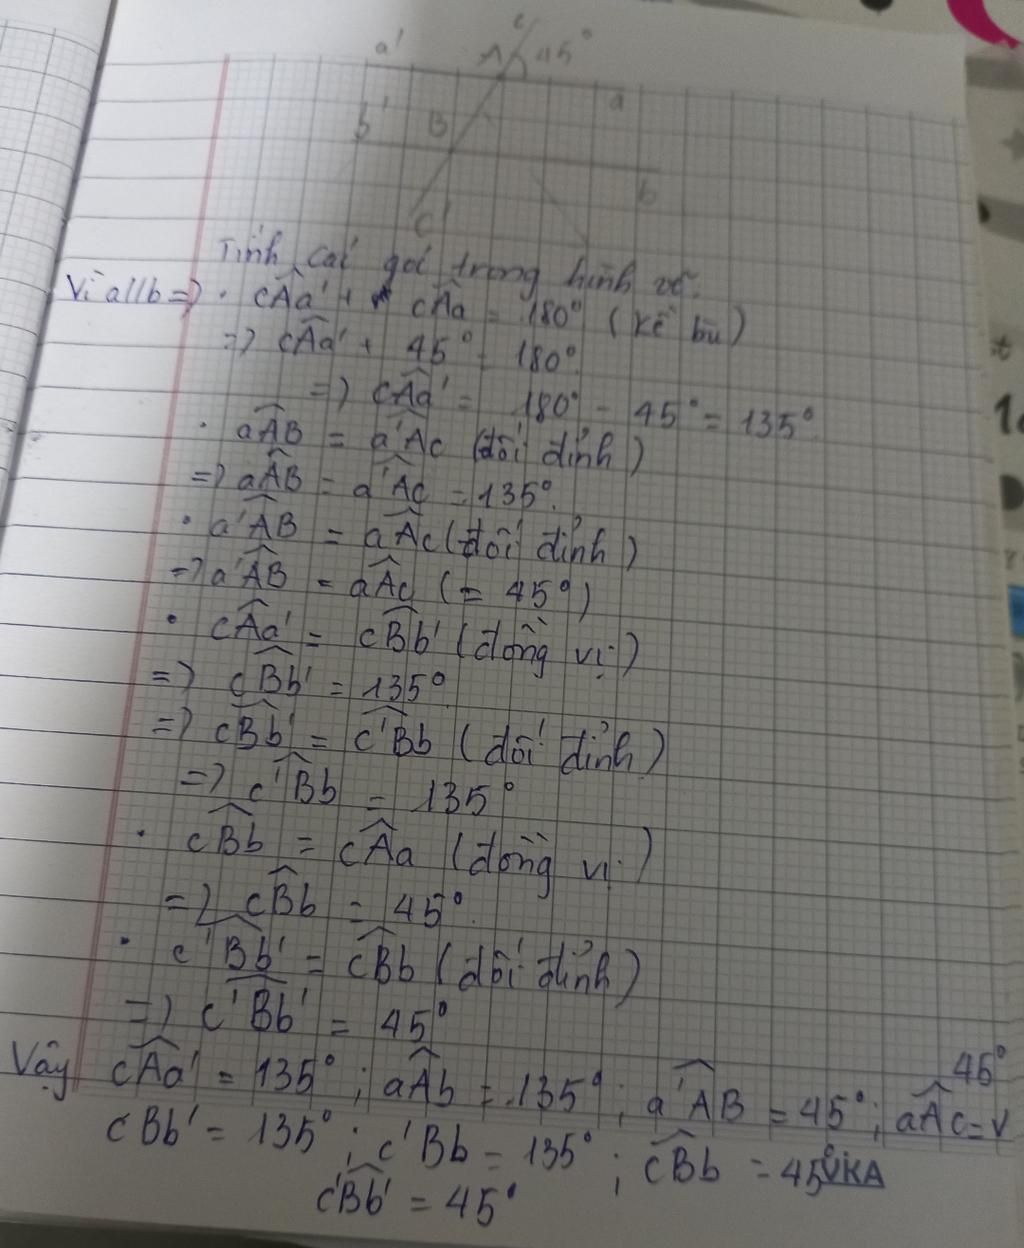 c
a' A 45°
a
b' B
b
c'
Tính các góc trong hình vẽ.
Vì a//b => · cÂa' + cÂa = 180° (kề bù)
=> cÂa' + 45° = 180°
=> cÂa' = 180° - 45° = 135°
· aÂB = a'Âc (đối đỉnh)
=> aÂB = a'Âc = 135°.
· a'ÂB = aÂc (đối đỉnh)
=> a'ÂB = aÂc (= 45°)
· cÂa' = cB̂b' (đồng vị)
=> cB̂b' = 135°
=> cB̂b' = c'B̂b (đối đỉnh)
=> c'B̂b = 135°
· cB̂b = cÂa (đồng vị)
=> cB̂b = 45°.
· c'B̂b' = cB̂b (đối đỉnh)
=> c'B̂b' = 45°
Vậy cÂa' = 135°; aÂb = 135°; a'ÂB = 45°; aÂc = 45°
cBb' = 135°; c'Bb = 135°; cB̂b = 45°
c'B̂b' = 45°